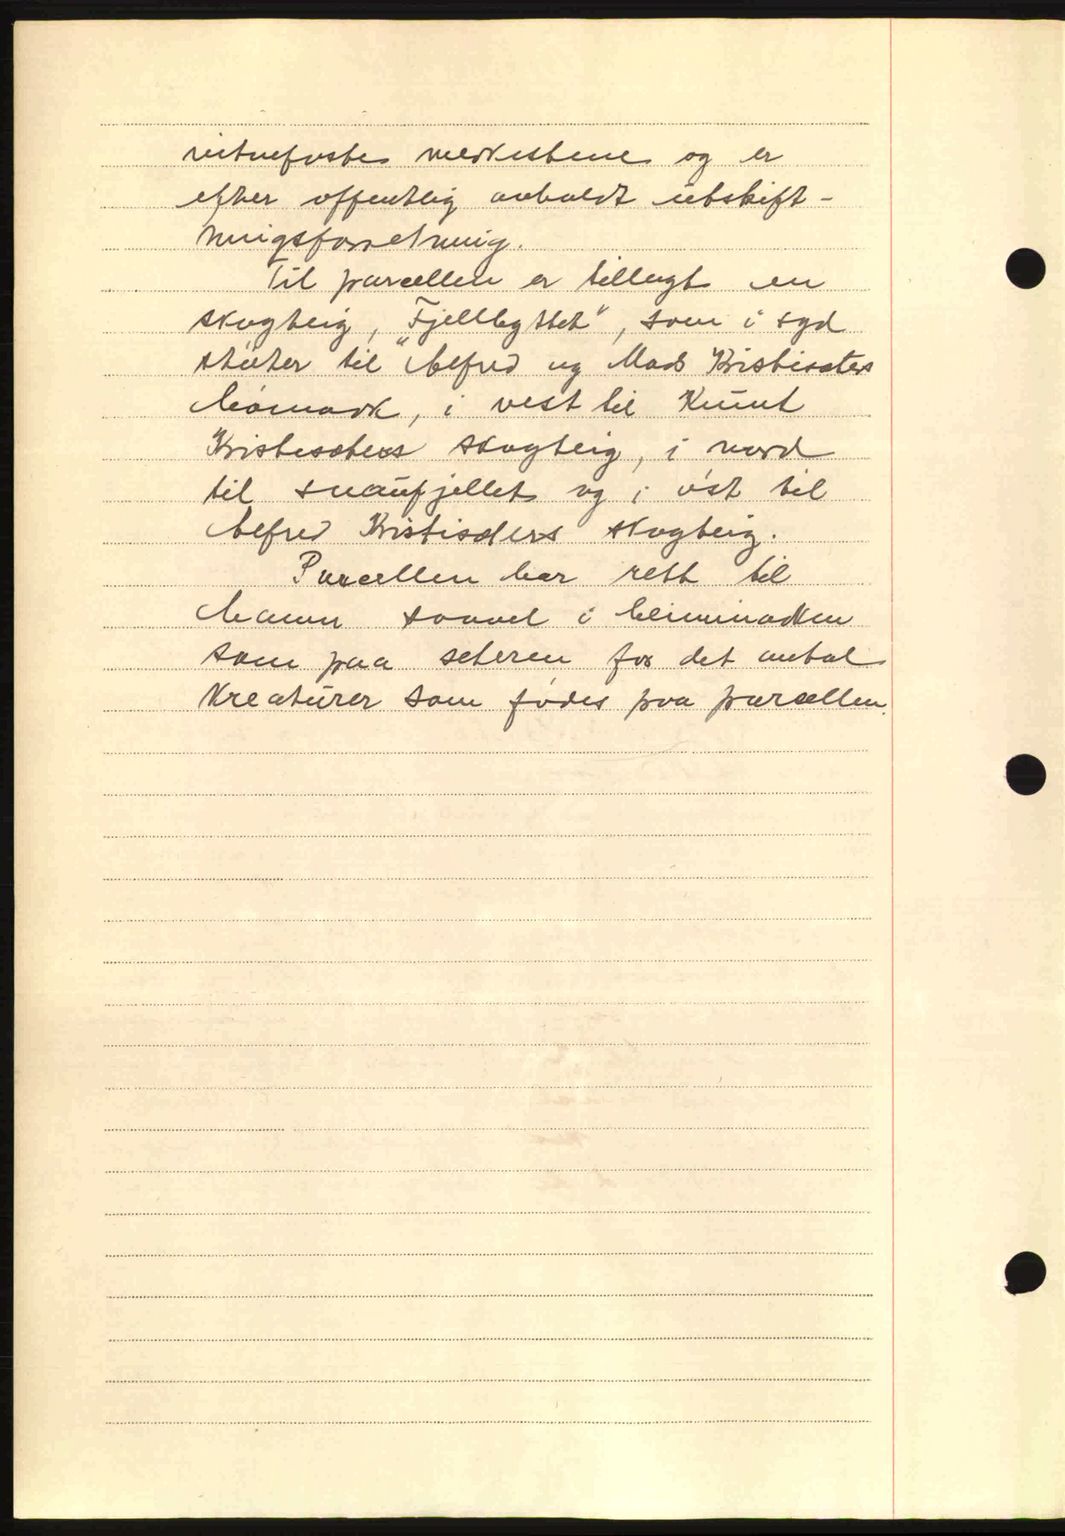 vitnefaste merkestene og er
efter offentlig avholdt utskift-
ningsforretning.
Til parcellen er tillagt en
skogteig, "Fjellbyttet", som i syd
støter til Alfred og Mads Kristisæters
bømark, i vest til Knut
Kristisæters skogteig, i nord
til snaufjellet og i øst til
Alfred Kristisæters skogteig.
Parcellen har rett til
havn saavel i heimmarken
som paa seteren for det antal
kreaturer som fødes paa parcellen.